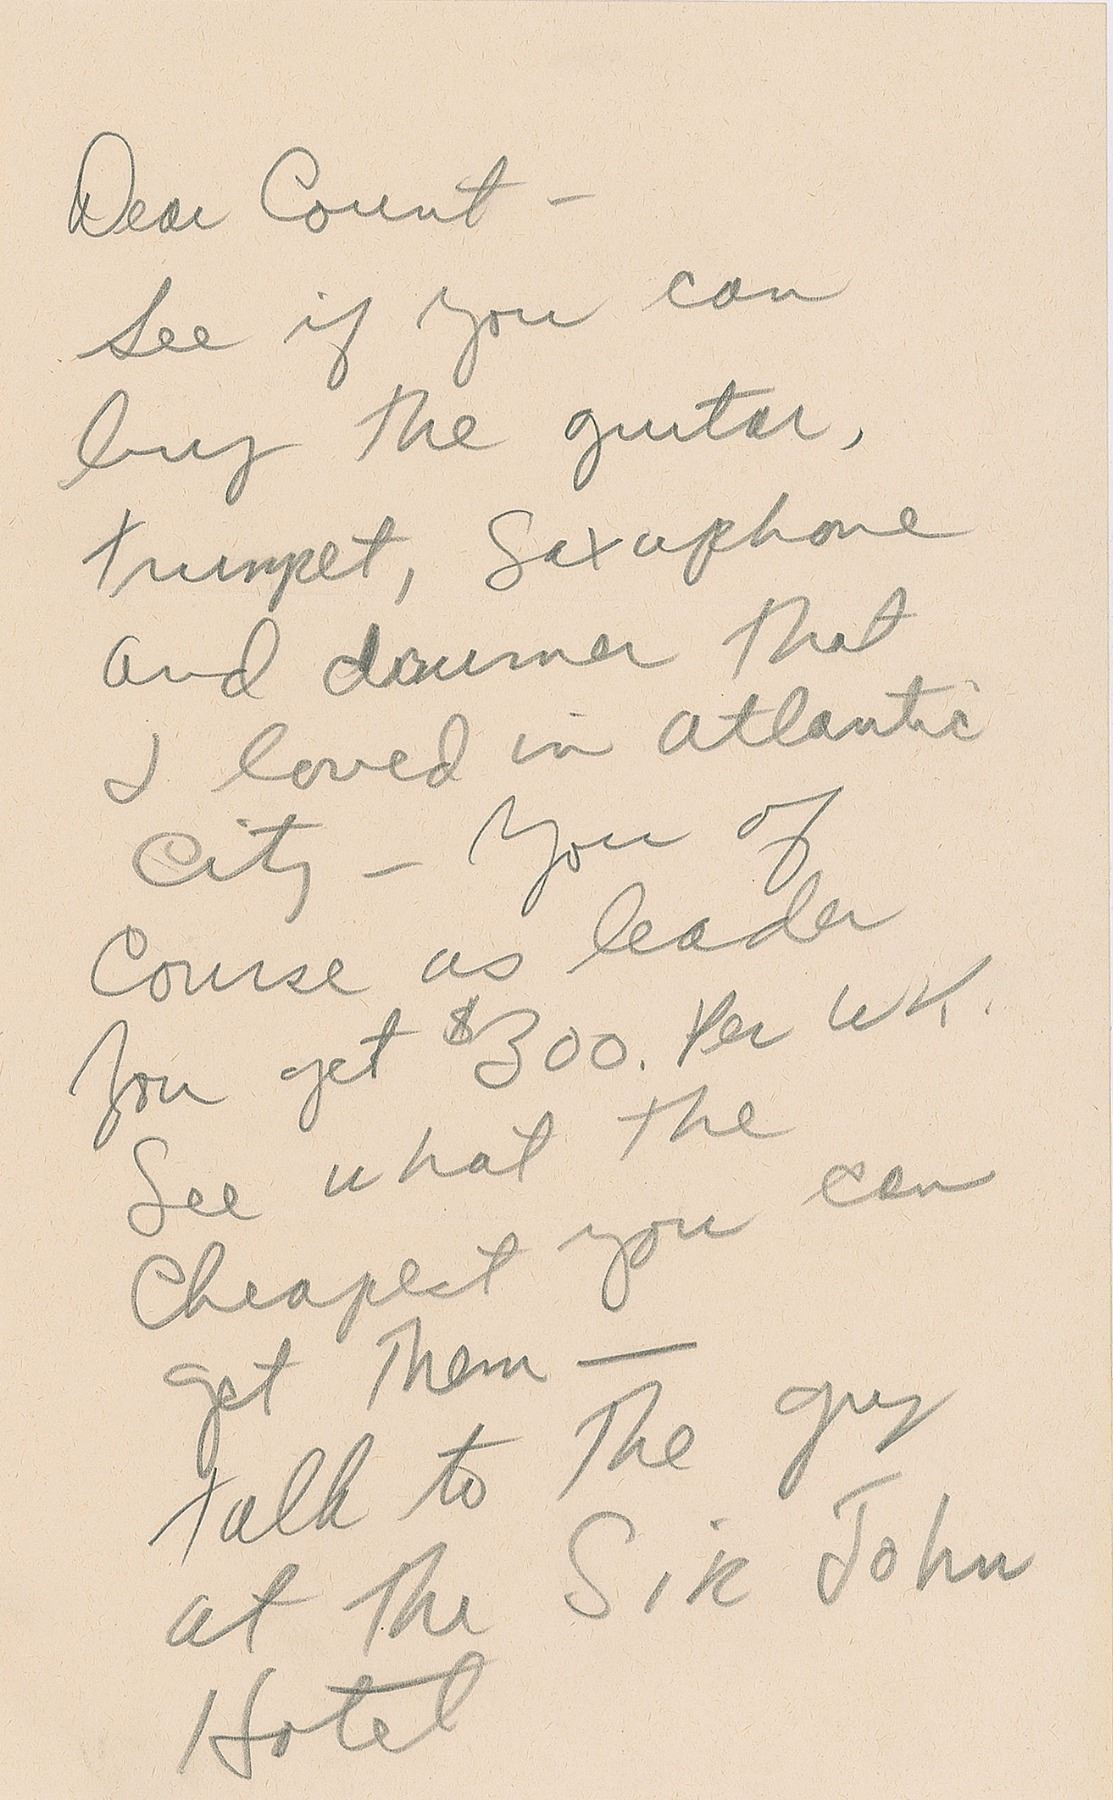 Dear Count –
See if you can
buy the guitar,
trumpet, Saxophone
and drummer that
I loved in atlantic
City – You of
Course as leader
You get $300. Per WK.
See what the
Cheapest you can
get them —
talk to the guy
at the Sir John
Hotel